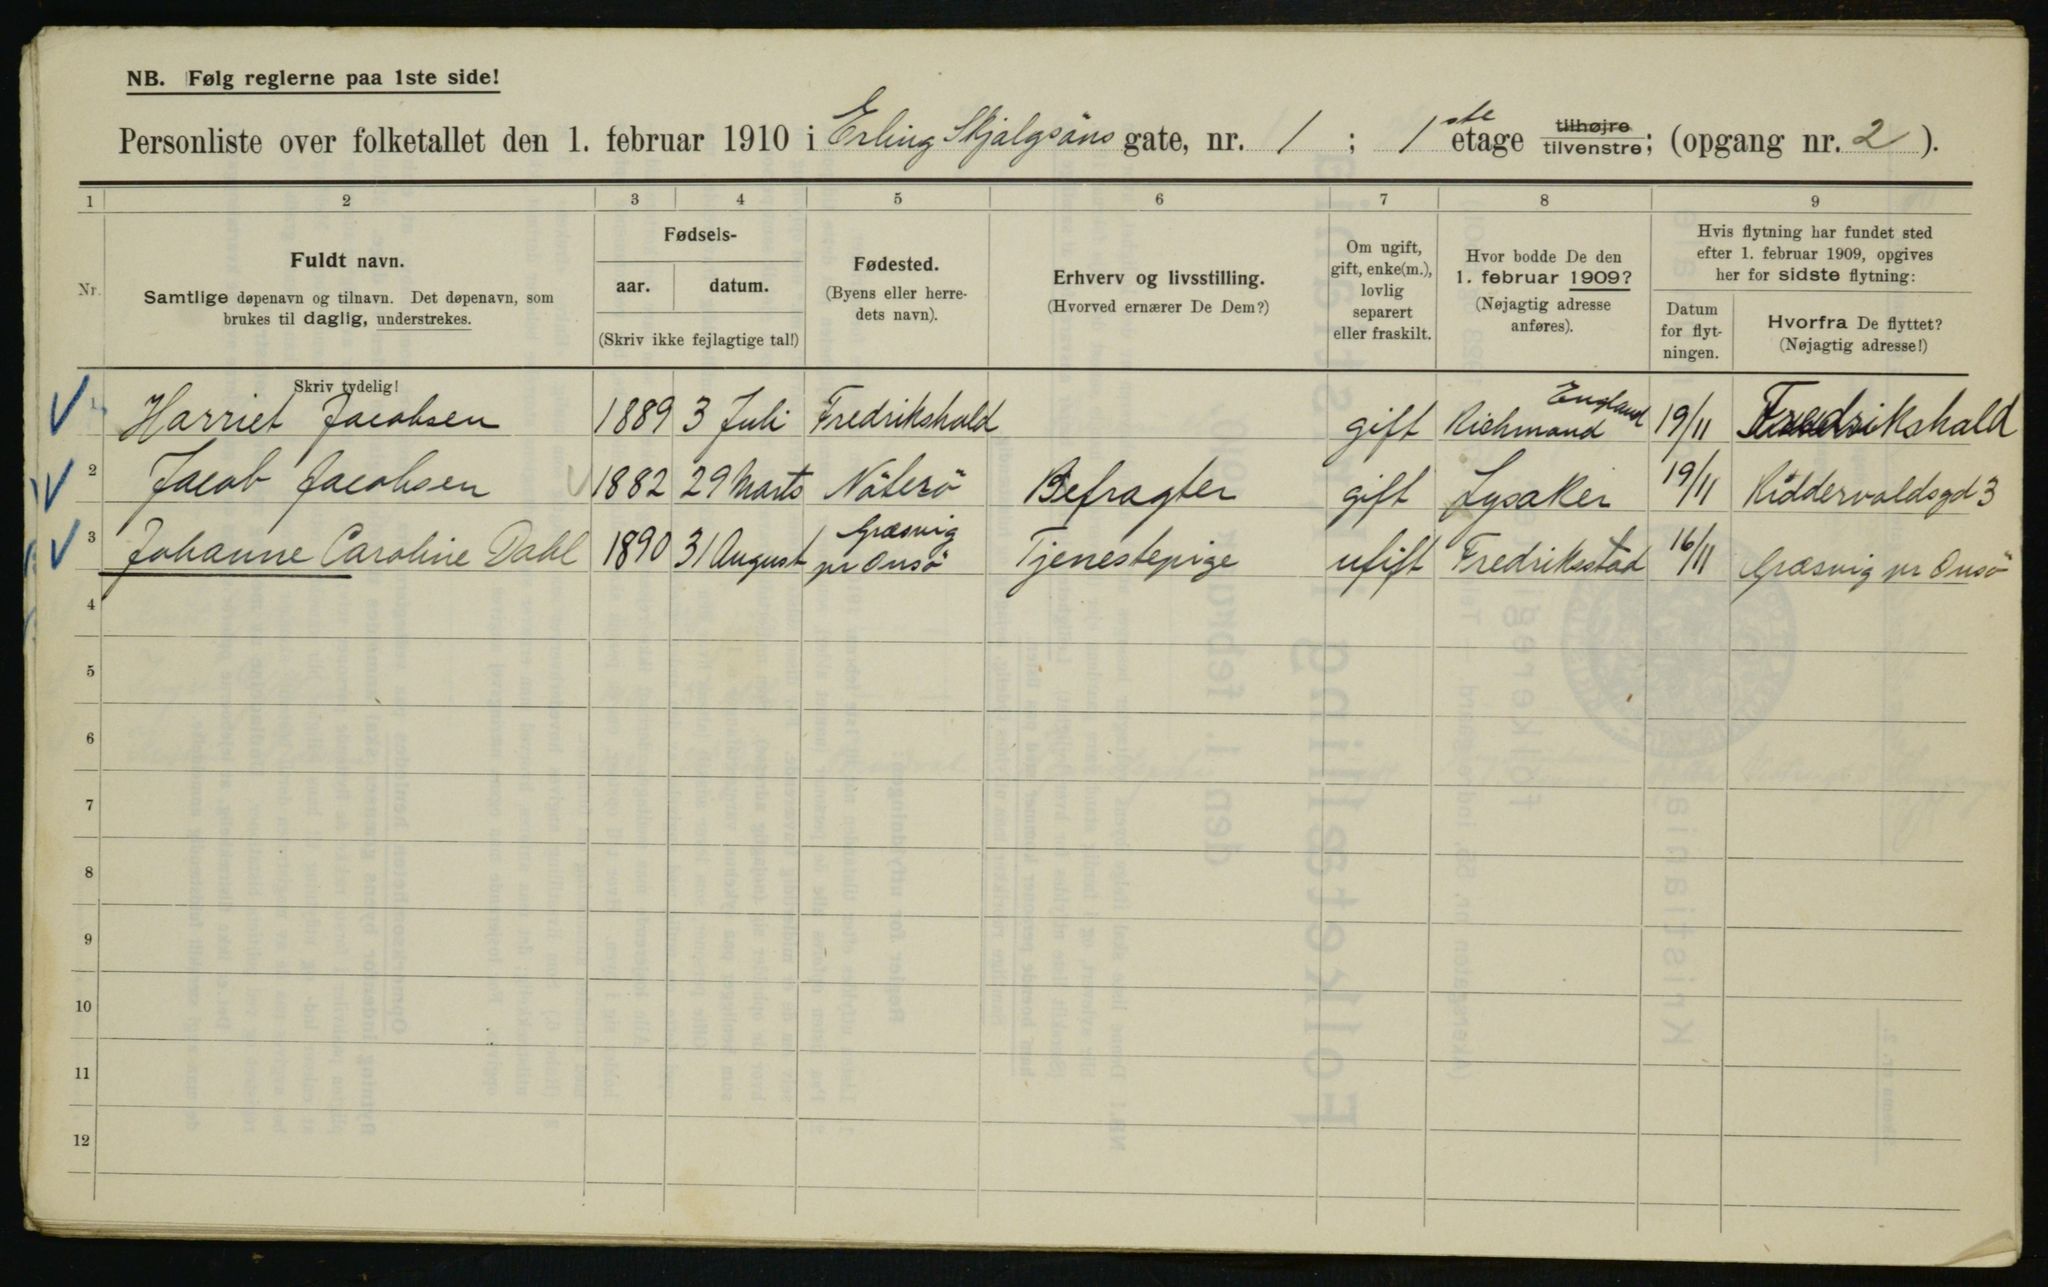 NB. Følg reglerne paa 1ste side!
Personliste over folketallet den 1. februar 1910 i Erling Skjalgsöns gate, nr. 1 ; 1ste etage tilhøjre tilvenstre; (opgang nr. 2 ).
1 2 3 4 5 6 7 8 9
Nr.
Fuldt navn.
Samtlige døpenavn og tilnavn. Det døpenavn, som
brukes til daglig, understrekes.
Skriv tydelig!
Fødsels-
aar. datum.
(Skriv ikke fejlagtige tal!)
Fødested.
(Byens eller herre-
dets navn).
Erhverv og livsstilling.
(Hvorved ernærer De Dem?)
Om ugift,
gift, enke(m.),
lovlig
separert
eller fraskilt.
Hvor bodde De den
1. februar 1909?
(Nøjagtig adresse
anføres).
Hvis flytning har fundet sted
efter 1. februar 1909, opgives
her for sidste flytning:
Datum
for flyt-
ningen.
Hvorfra De flyttet?
(Nøjagtig adresse!)
1 Harriet Jacobsen 1889 3 Juli Fredrikshald gift Richmond England 19/11 Fredrikshald
2 Jacob Jacobsen 1882 29 Marts Nöterö Befragter gift Lysaker 19/11 Riddervoldsgd 3
3 Johanne Caroline Dahl 1890 31 August Græsvig pr Onsö Tjenestepige ugift Fredriksstad 16/11 Græsvig pr Onsö
4
5
6
7
8
9
10
11
12